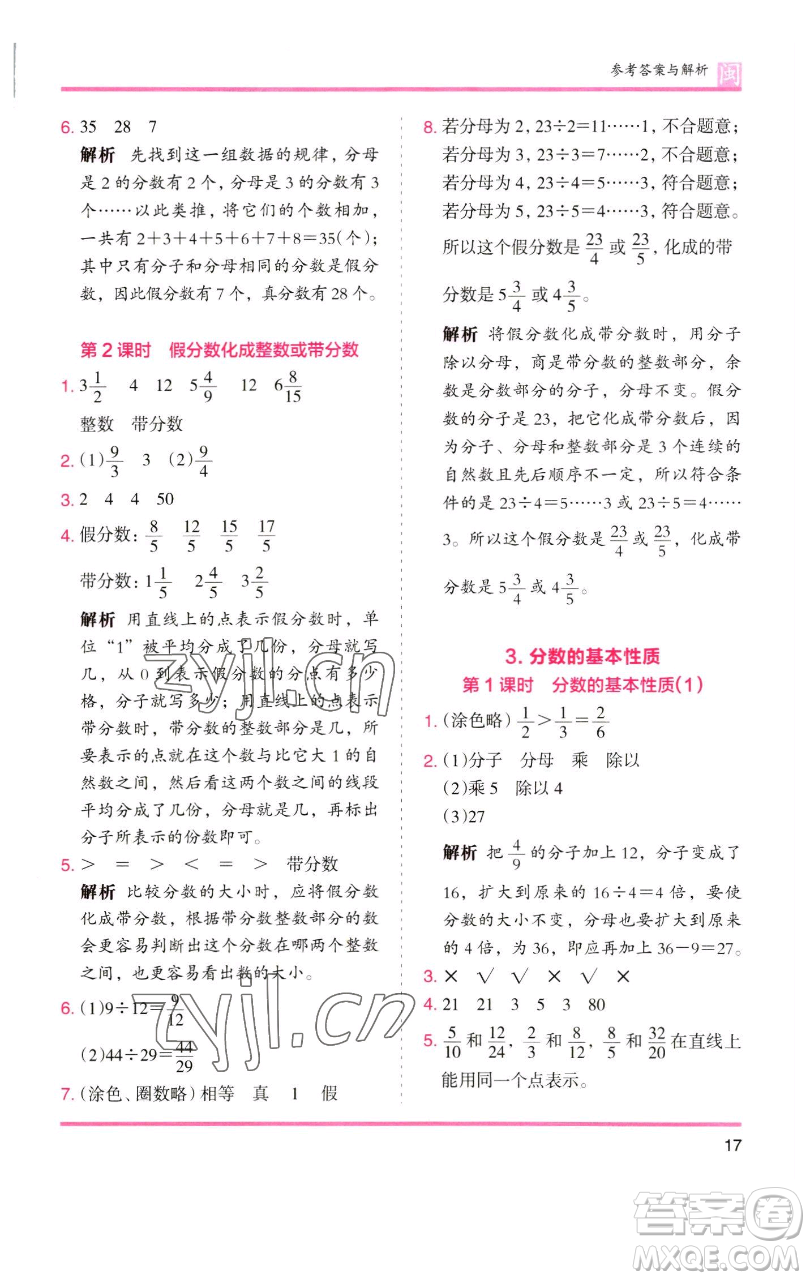 参考答案与解析 闽
6. 35 28 7
解析 先找到这一组数据的规律，分母
是 2 的分数有 2 个，分母是 3 的分数有 3
个……以此类推，将它们的个数相加，
一共有 2+3+4+5+6+7+8=35(个)；
其中只有分子和分母相同的分数是假分
数，因此假分数有 7 个，真分数有 28 个。
第 2 课时 假分数化成整数或带分数
1. 3 1/2 4 12 5 4/9 12 6 8/15
整数 带分数
2. (1) 9/3 3 (2) 9/4
3. 2 4 4 50
4. 假分数：8/5 12/5 15/5 17/5
带分数：1 1/5 2 4/5 3 2/5
解析 用直线上的点表示假分数时，单
位“1”被平均分成了几份，分母就写
几，从 0 到表示假分数的分点有多少
格，分子就写多少；用直线上的点表示
带分数时，带分数的整数部分是几，所
要表示的点就在这个数与比它大 1 的自
然数之间，然后看这两个数之间的线段
平均分成了几份，分母就是几，再标出
分子所表示的份数即可。
5. > = > < = > 带分数
解析 比较分数的大小时，应将假分数
化成带分数，根据带分数整数部分的数
会更容易判断出这个分数在哪两个整数
之间，也更容易看出数的大小。
6. (1)9÷12=9/12
(2)44÷29=44/29
7. (涂色、圈数略) 相等 真 1 假
8. 若分母为 2，23÷2=11……1，不合题意；
若分母为 3，23÷3=7……2，不合题意；
若分母为 4，23÷4=5……3，符合题意；
若分母为 5，23÷5=4……3，符合题意。
所以这个假分数是 23/4 或 23/5，化成的带
分数是 5 3/4 或 4 3/5。
解析 将假分数化成带分数时，用分子
除以分母，商是带分数的整数部分，余
数是分数部分的分子，分母不变。假分
数的分子是 23，把它化成带分数后，因
为分子、分母和整数部分是 3 个连续的
自然数且先后顺序不一定，所以符合条
件的是 23÷4=5……3 或 23÷5=4……
3。所以这个假分数是 23/4 或 23/5，化成带
分数是 5 3/4 或 4 3/5。
3. 分数的基本性质
第 1 课时 分数的基本性质(1)
1. (涂色略) 1/2 > 1/3 = 2/6
2. (1)分子 分母 乘 除以
(2)乘 5 除以 4
(3)27
解析 把 4/9 的分子加上 12，分子变成了
16，扩大到原来的 16÷4=4 倍，要使
分数的大小不变，分母也要扩大到原来
的 4 倍，为 36，即应再加上 36-9=27。
3. × √ √ × ×
4. 21 21 3 5 3 80
5. 5/10 和 12/24，2/3 和 8/12，8/5 和 32/20 在直线上
能用同一个点表示。
17
zyjl.cn
zyjl.cn
答案圈
MXQE.COM